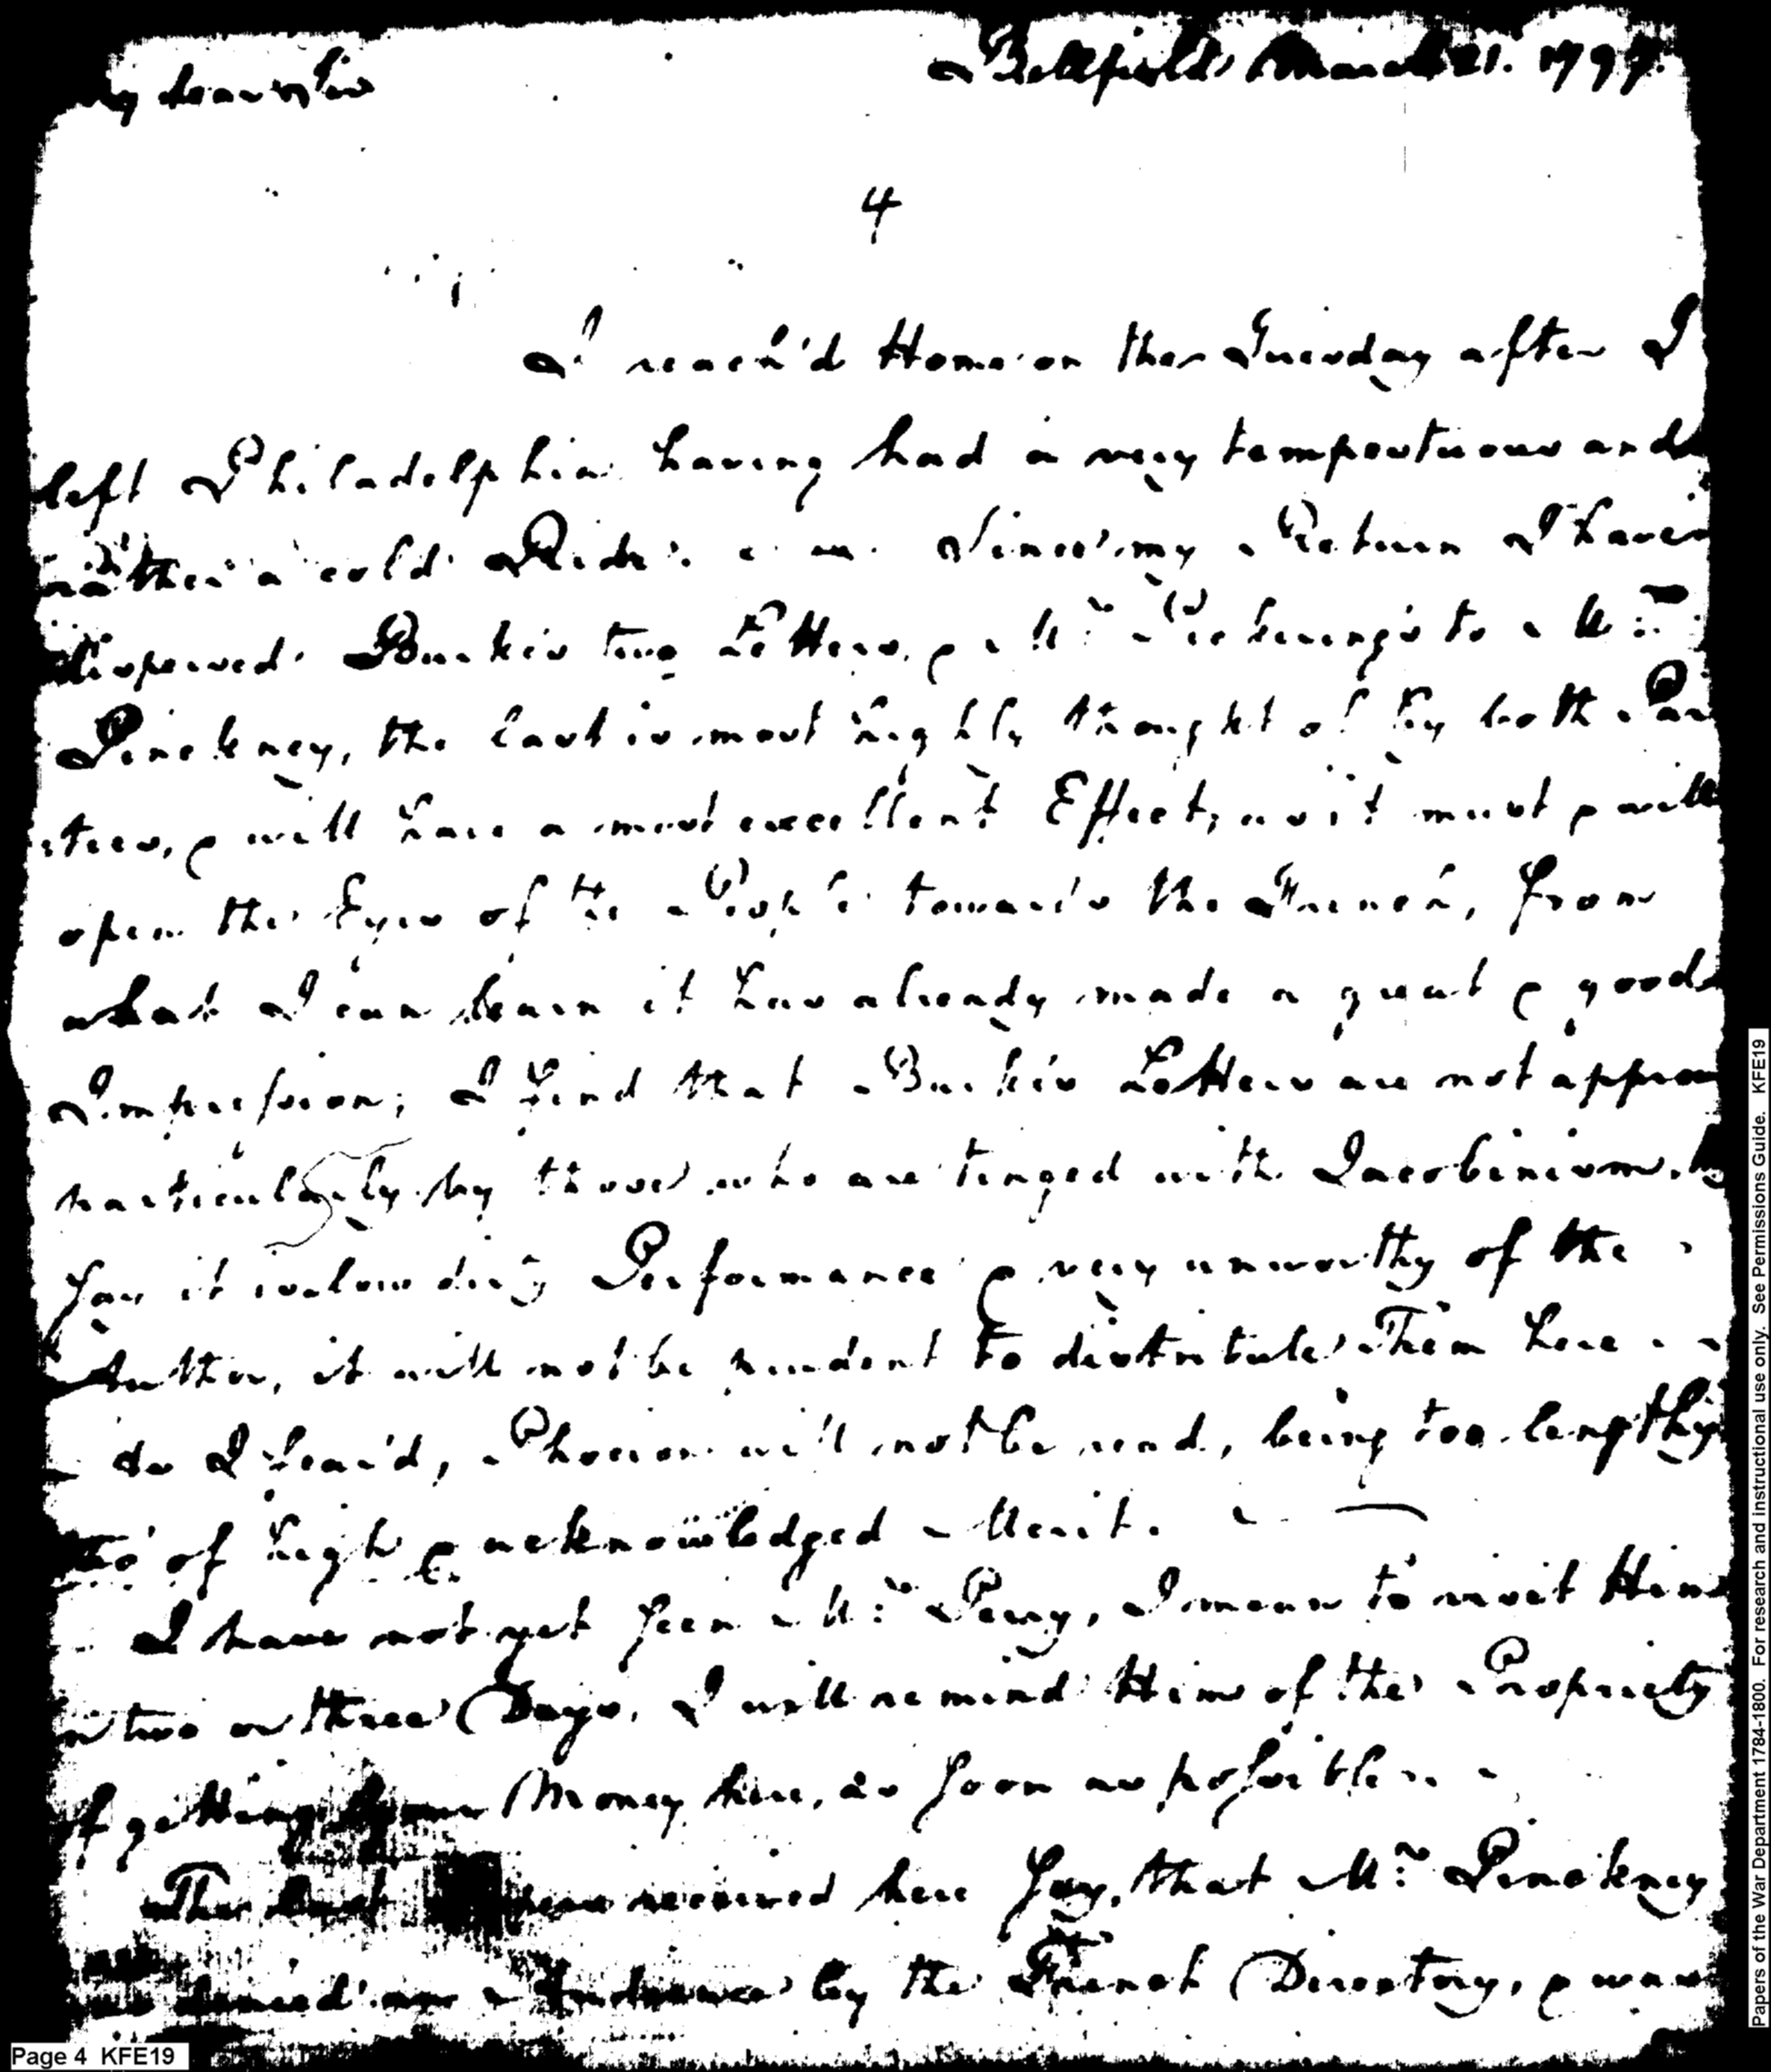 My dear Sir
Bellfield March 21. 1797.
4
I reach'd Home on the Tuesday after I
left Philadelphia having had a very tempestuous and
rather a cold Ride. Since my Return I have
dispersed Burkes two Letters, & Mr. Pickerings to Mr.
Pinckney, the last is most highly thought of by both Par
ties, & will have a most excellent Effect, as it must & will
open the Eyes of the People towards the French, from
what I can learn it has already made a great & good
Impression; I find that Burkes Letters are not approv
particularly by those who are tinged with Jacobinism.
say it is a low dirty Performance & very unworthy of the
Author, it will not be prudent to distribute Them here
As I fear'd, Phocion will not be read, being too lengthy
tho' of high & acknowledged Merit.
I have not yet seen Mr. Perry, I mean to visit Him
in two or three Days. I will remind Him of the Propriety
of getting your Money here, as soon as possible
The last received here say, that Mr. Pinckney
was denied an Audience by the French Directory, & was
Page 4 KFE19
Papers of the War Department 1784-1800. For research and instructional use only. See Permissions Guide. KFE19